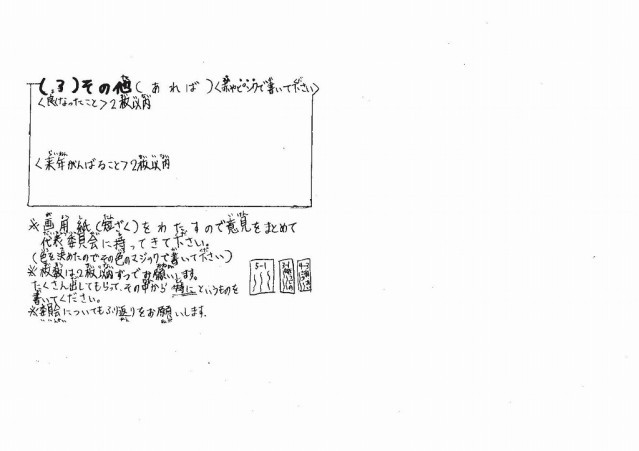 (3)その他(あれば)<赤やピンクで書いて下さい>
<良くなったこと>2枚以内
<来年がんばること>2枚以内
※画用紙(短ざく)をわたすので意見をまとめて
代表委員会に持ってきて下さい。
(色を決めたのでその色のマジックで書いて下さい)
※枚数は2枚以内ずつでお願いします。
たくさん出してもらって、その中から特にというものを
書いてください。
※委員会についてもふり返りをお願いします。
5-1